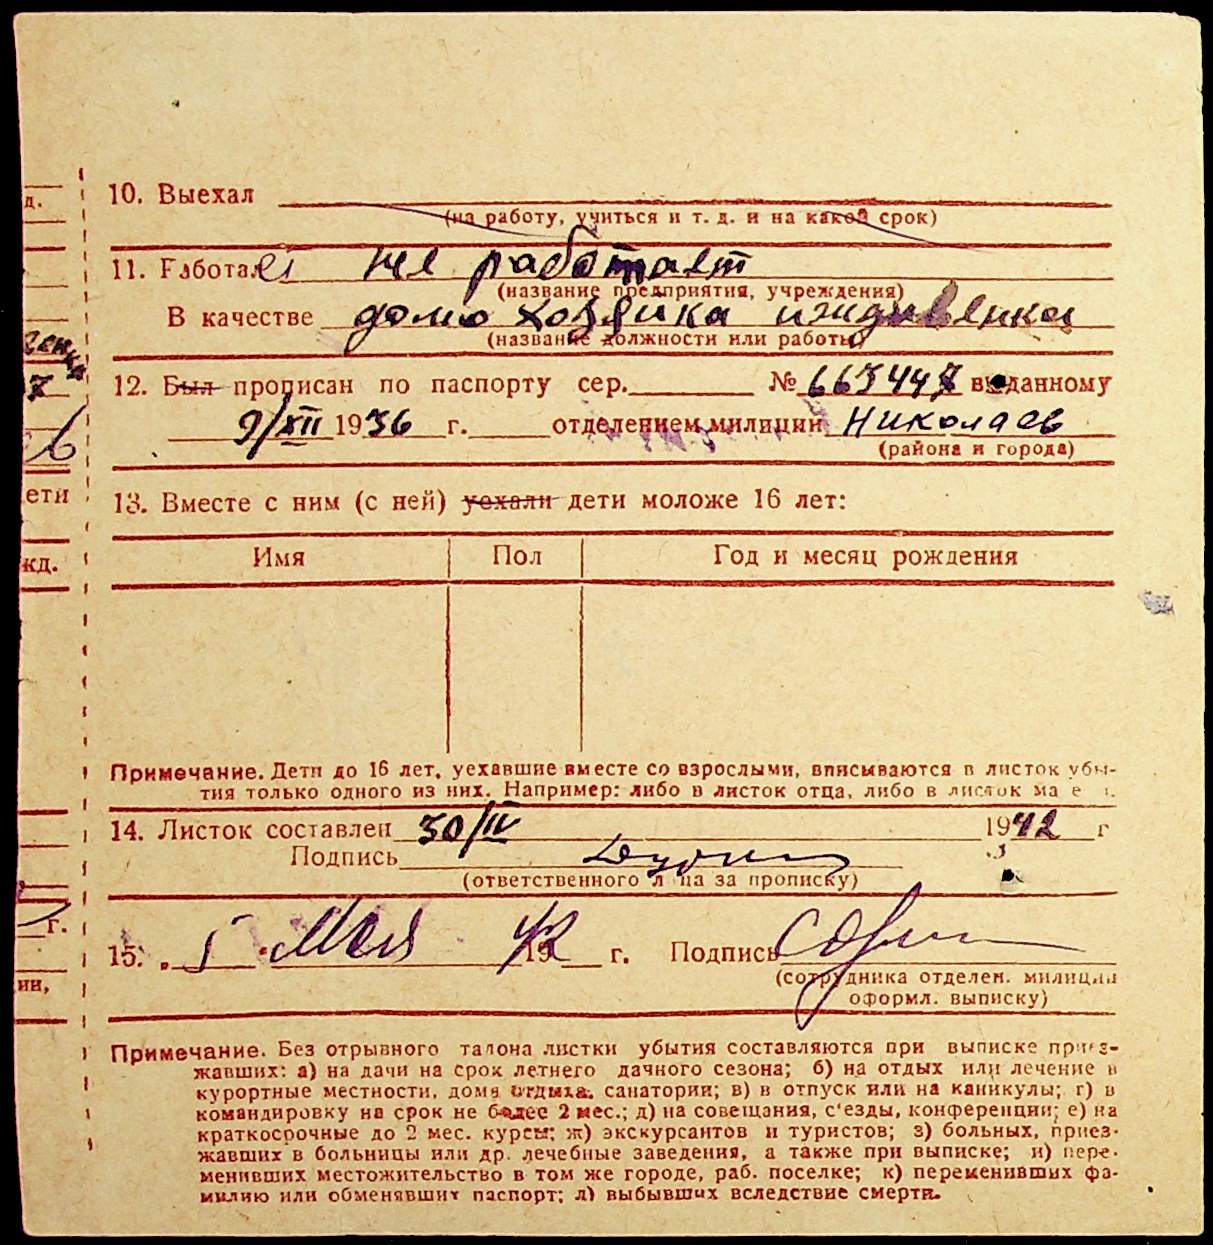 10. Выехал
(на работу, учиться и т. д. и на какой срок)
11. Работает не работает
(название предприятия, учреждения)
В качестве домо хозяйка иждивенка
(название должности или работы)
12. Был прописан по паспорту сер. № 663447 выданному
9/XII 1936 г. отделением милиции Николаев
(района и города)
13. Вместе с ним (с ней) уехали дети моложе 16 лет:
Имя Пол Год и месяц рождения
Примечание. Дети до 16 лет, уехавшие вместе со взрослыми, вписываются в листок убы-
тия только одного из них. Например: либо в листок отца, либо в листок ма е и.
14. Листок составлен 30/IV 1942 г
Подпись
(ответственного л ца за прописку)
15. „ 5 " Мая 1942 г. Подпись
(сотрудника отделен. милиции
оформл. выписку)
Примечание. Без отрывного талона листки убытия составляются при выписке приез-
жавших: а) на дачи на срок летнего дачного сезона; б) на отдых или лечение в
курортные местности, дома отдыха, санатории; в) в отпуск или на каникулы; г) в
командировку на срок не более 2 мес.; д) на совещания, с'езды, конференции; е) на
краткосрочные до 2 мес. курсы; ж) экскурсантов и туристов; з) больных, приез-
жавших в больницы или др. лечебные заведения, а также при выписке; и) пере-
менивших местожительство в том же городе, раб. поселке; к) переменивших фа-
милию или обменявших паспорт; л) выбывших вследствие смерти.